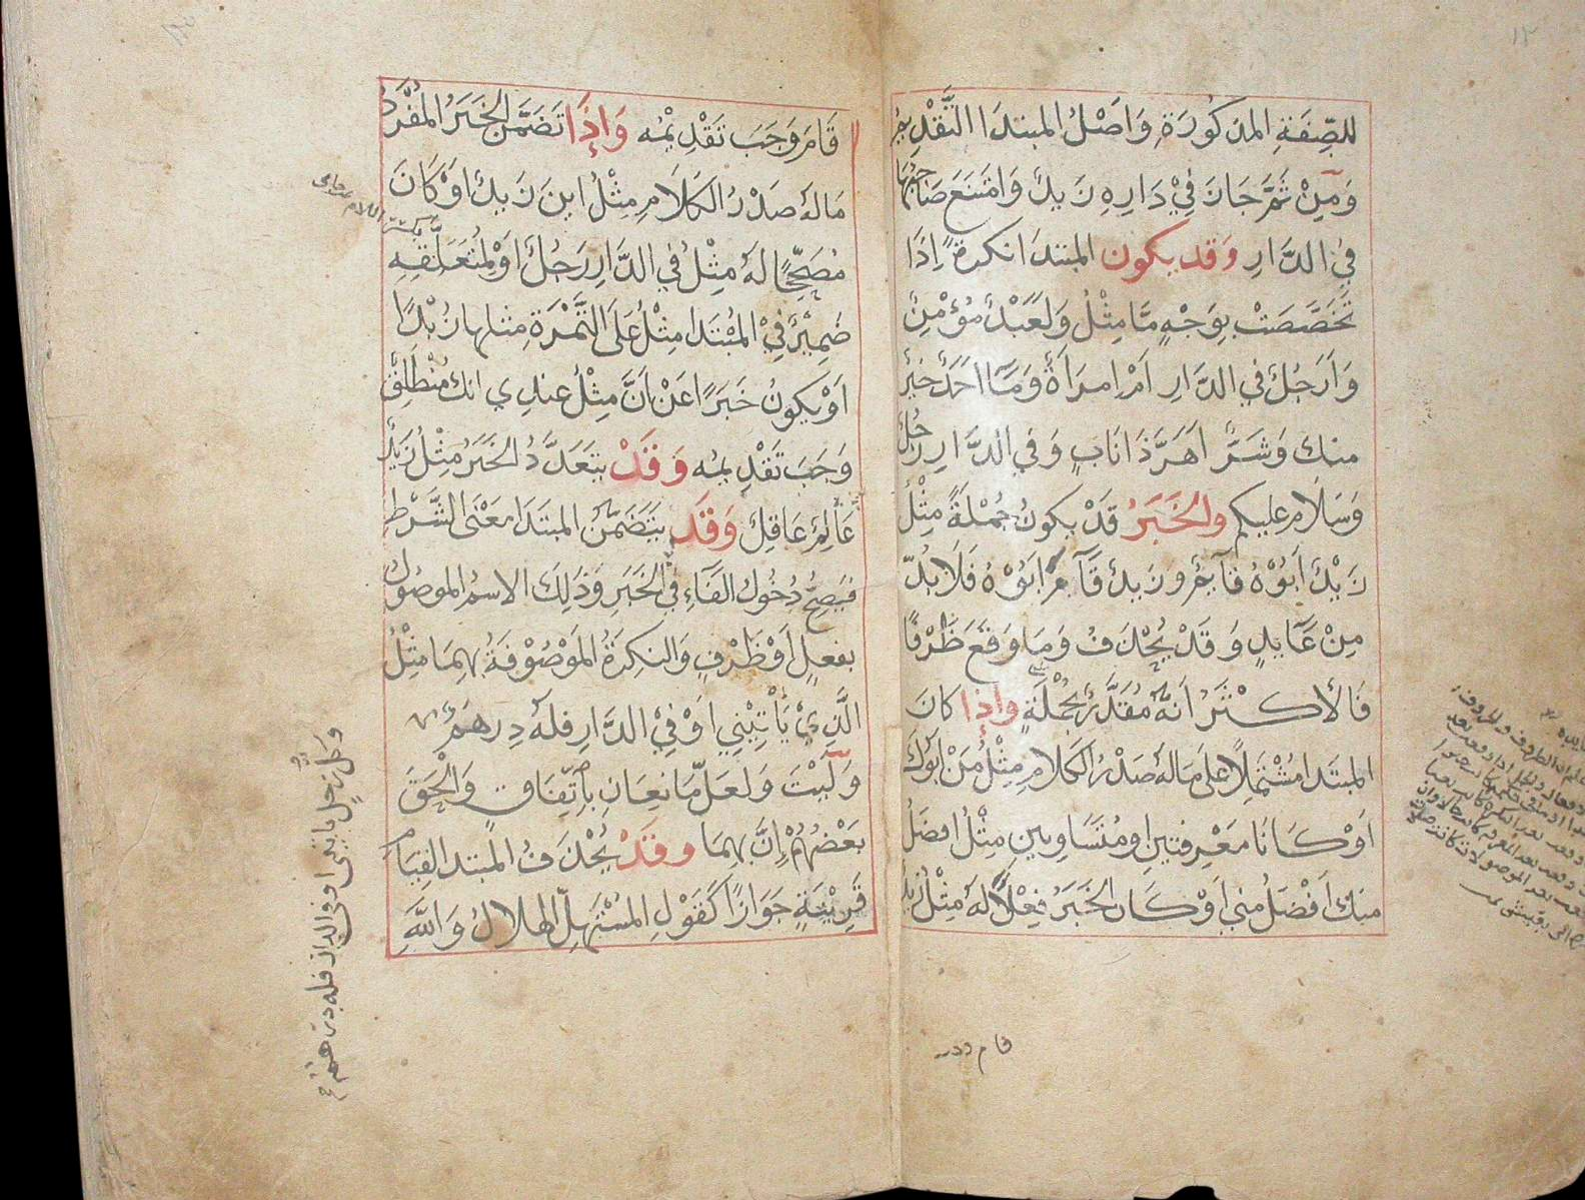 للصِّفَةِ المذكُورَةِ وَاَصْلُ المبتدَا التَّقْدِيمُ
وَمِنْ ثَمَّ جَازَ فِيْ دَارِهِ زَيدٌ وَامْتَنَعَ صَاحِبُهَا
فِي الدَّارِ وَقد يكون المبتدَا نكرةً اِذَا
تَخَصَّصَتْ بِوَجْهٍ مَّا مِثْلُ وَلَعَبْدٌ مُؤْمِنٌ
وَاَرَجُلٌ فِي الدَّارِ اَمْ اِمرَاَةٌ وَمَا اَحَدٌ خَيْرٌ
منكَ وَشَرٌّ اَهَرَّ ذَا نَابٍ وَفِي الدَّارِ رَجُلٌ
وَسَلَام عليكم والخَبَرُ قَدْ يكونُ جُمْلَةً مِثْلُ
زَيْدٌ اَبُوْهُ قَآئِمٌ وزَيدٌ قَآمَ اَبُوْهُ فَلَا بُدَّ
مِنْ عَآيِدٍ وَقَدْ يُحْذَفُ وَمَا وَقَعَ ظَرْفًا
فَالْاَكْثَرُ اَنَّهُ مُقَدَّرٌ بِجُمْلَةٍ وَاِذَا كَانَ
المبتَدا مُشْتَمِلًا عَلَى مَالَهُ صَدْرُ الكَلَامِ مِثْلُ مَنْ اَبُوكَ
اَوْ كَانَا مَعْرِفتينِ او مُتَسَاوِيينِ مِثْلُ افضَلُ
منكَ اَفْضَلُ مِنِي اَوْ كَانَ الخَبَرُ فِعْلًا لَهُ مِثْلُ زيدٌ
قام وو
قَامَ وَجَبَ تَقْدِيْمُه وَاِذَا تَضَمَّنَ الخَبَرُ المُفْرَدُ
مَالَهُ صَدْرُ الكَلَامِ مِثْلُ اينَ زَيدٌ اوْ كَانَ
مُصَحِّحًا لَهُ مِثْلُ فِي الدَّارِ رَجُلٌ اَوْ لِمُتَعَلَّقِهِ
ضَمِيْرٌ فِيْ المُبْتَدَا مِثْلُ عَلَى التَّمْرَةِ مثلها زُبْدًا
اَوْ يكونُ خَبَرًا عَنْ اَنَّ مِثْلُ عندِي انك مُنْطَلِقٌ
وَجَبَ تَقْدِيمُه وَقَدْ يتَعَدَّدُ الخَبَرُ مِثْلُ زَيْدٌ
عَالِمٌ عَاقِلٌ وَقَد يتَضَمَّنُ المبتَدَا مَعْنَى الشَّرْطِ
فَيَصِحُّ دُخُولُ الفَآءِ فِي الخَبَرِ وَذَلِكَ الاسمُ الموصُولُ
بفعلٍ اَوْ ظَرْفٍ وَالنكِرَةُ المَوْصُوْفَةُ بهِمَا مثِلُ
الَّذِيْ يَاْتِيْنِي اَوْ فِيْ الدَّارِ فلَهُ دِرهَمٌ
وَلَيْتَ وَلَعلَّ مَانِعَانِ بِاتِّفَاقٍ وَاَلْحَقَ
بَعْضُهُمْ اِنَّ بهِمَا وقَدْ يُحْذَفُ المبتدا لقِيَامِ
قَرِيْنَةٍ جَوَازًا كَقَوْلِ المُسْتَهِلِّ الهلالُ وَاللّٰهِ
وَكل رجل ياتينى او فى الدار فله درهم